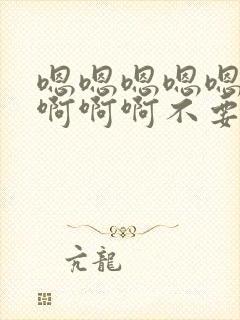 嗯嗯嗯嗯嗯
啊啊啊不要
亢龍